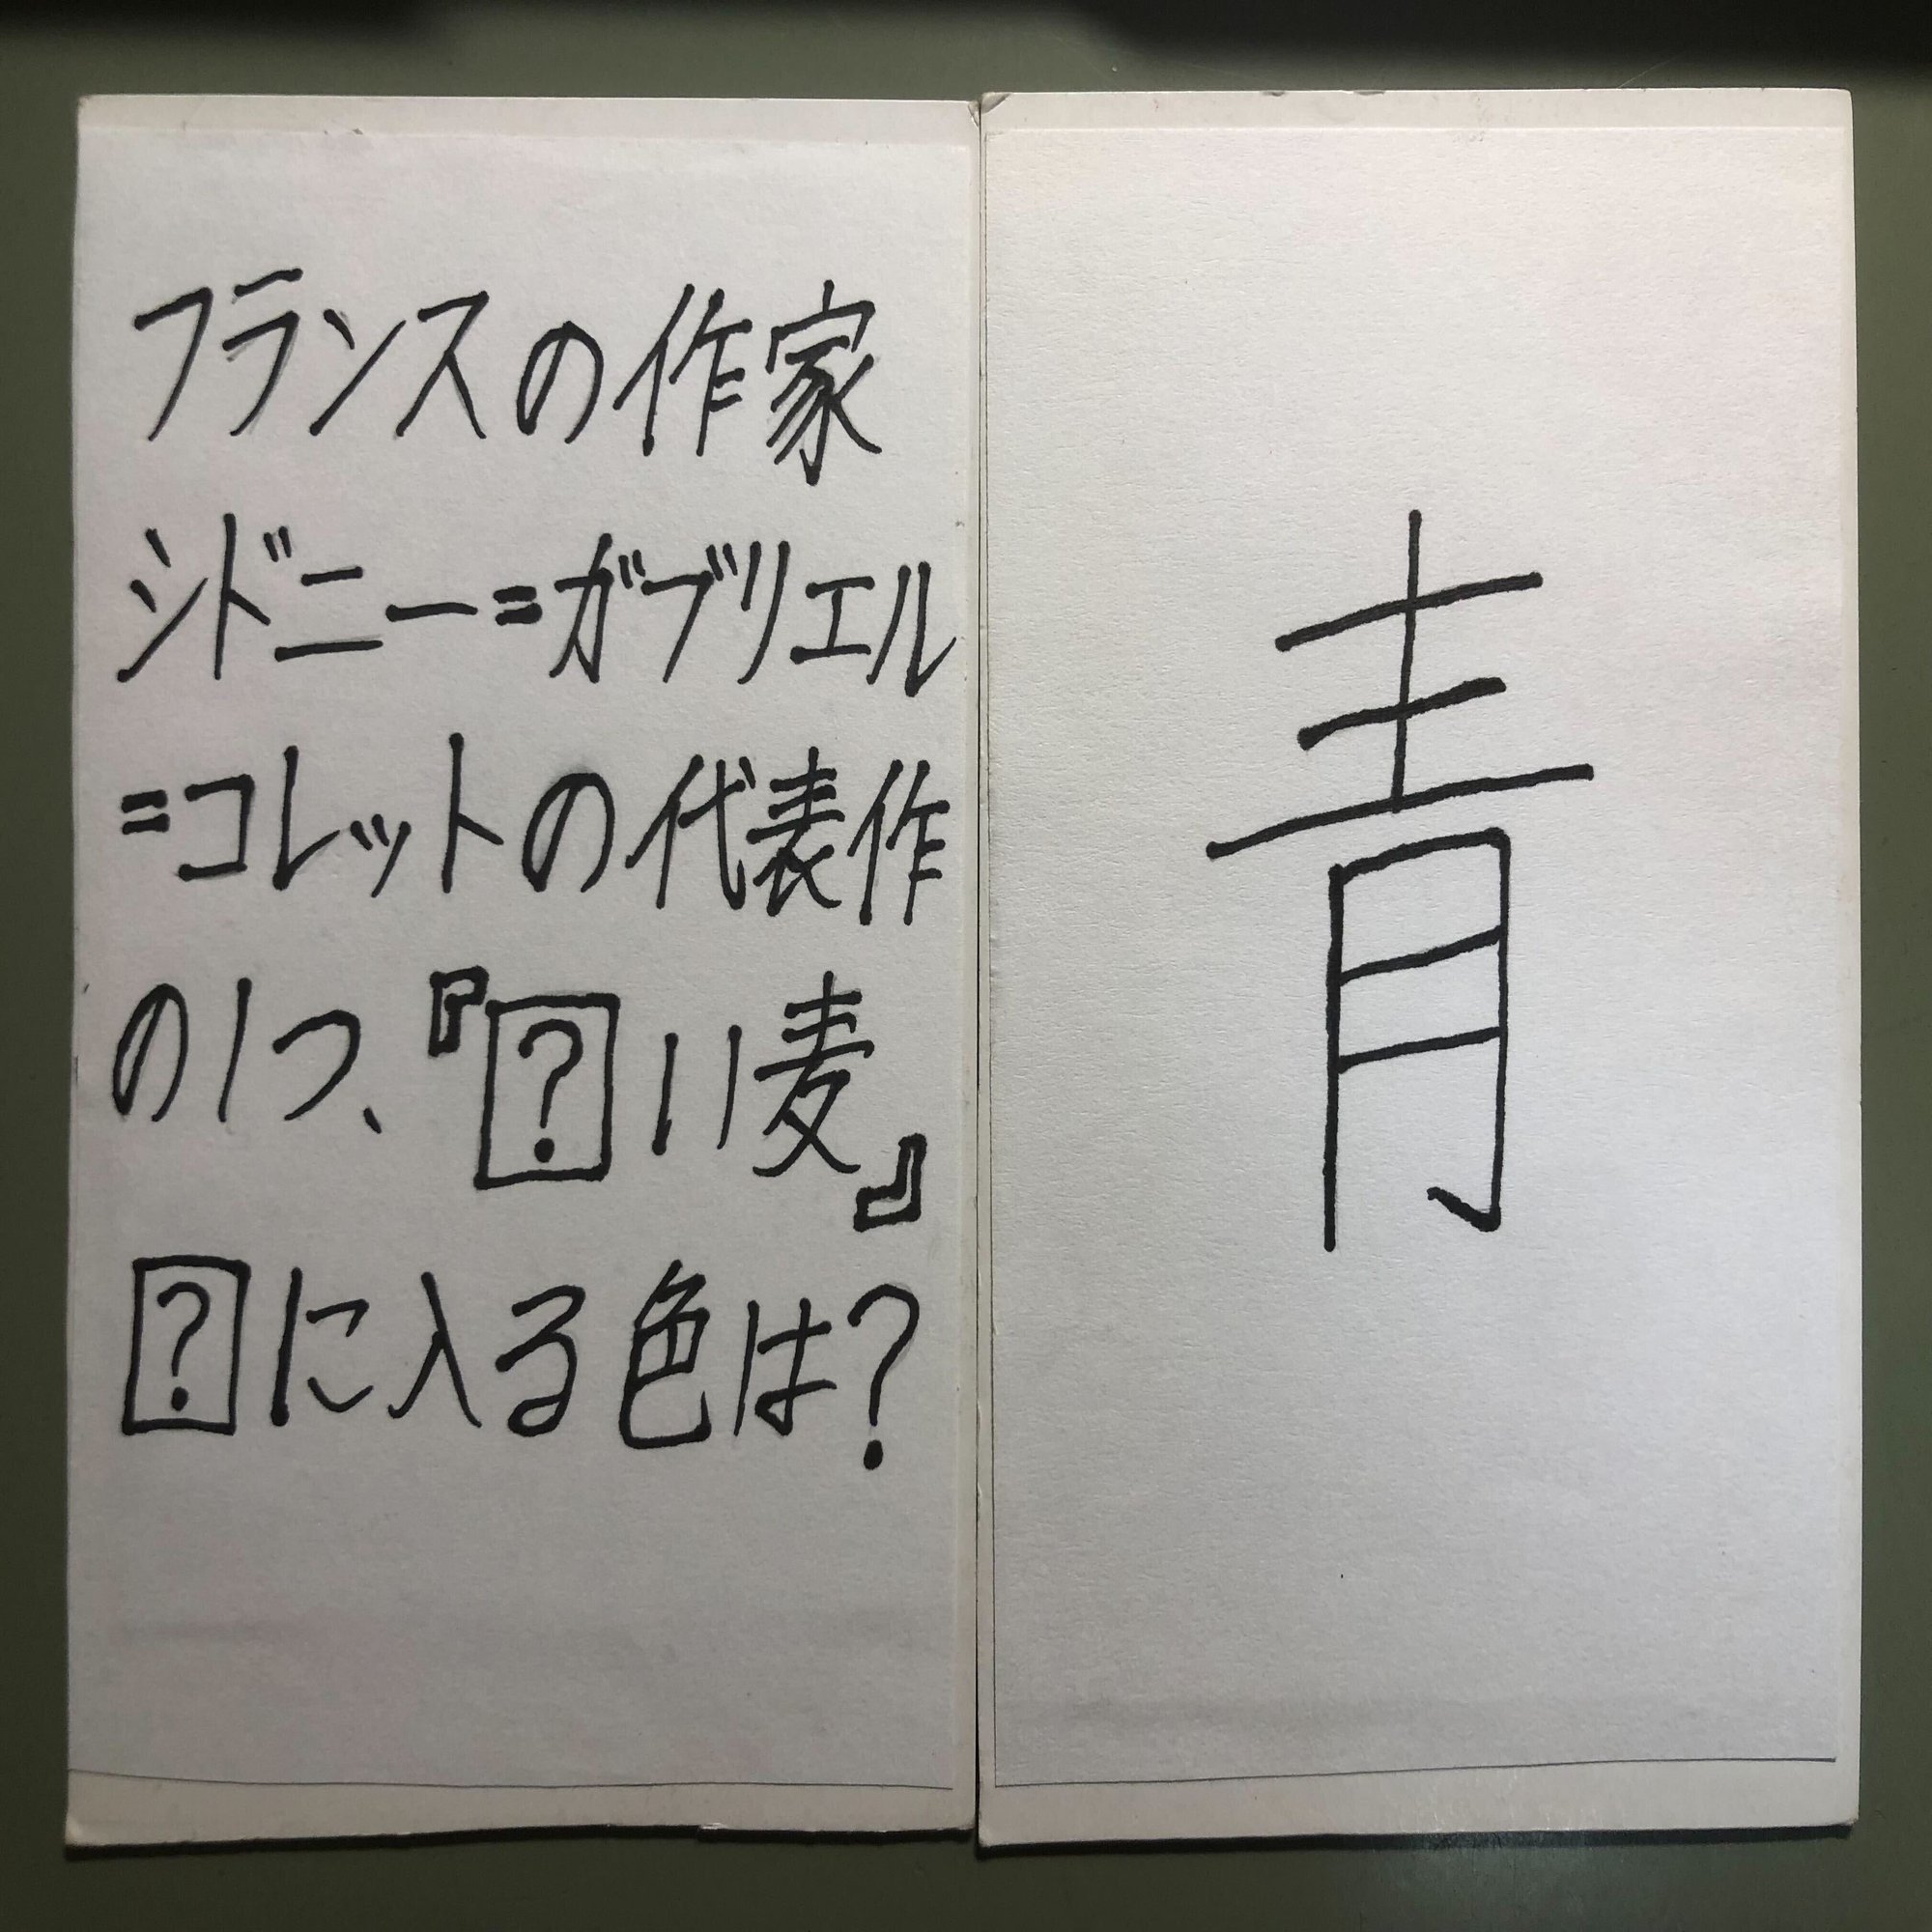 フランスの作家
シドニー=ガブリエル
=コレットの代表作
の1つ、『?い麦』
?に入る色は?
青